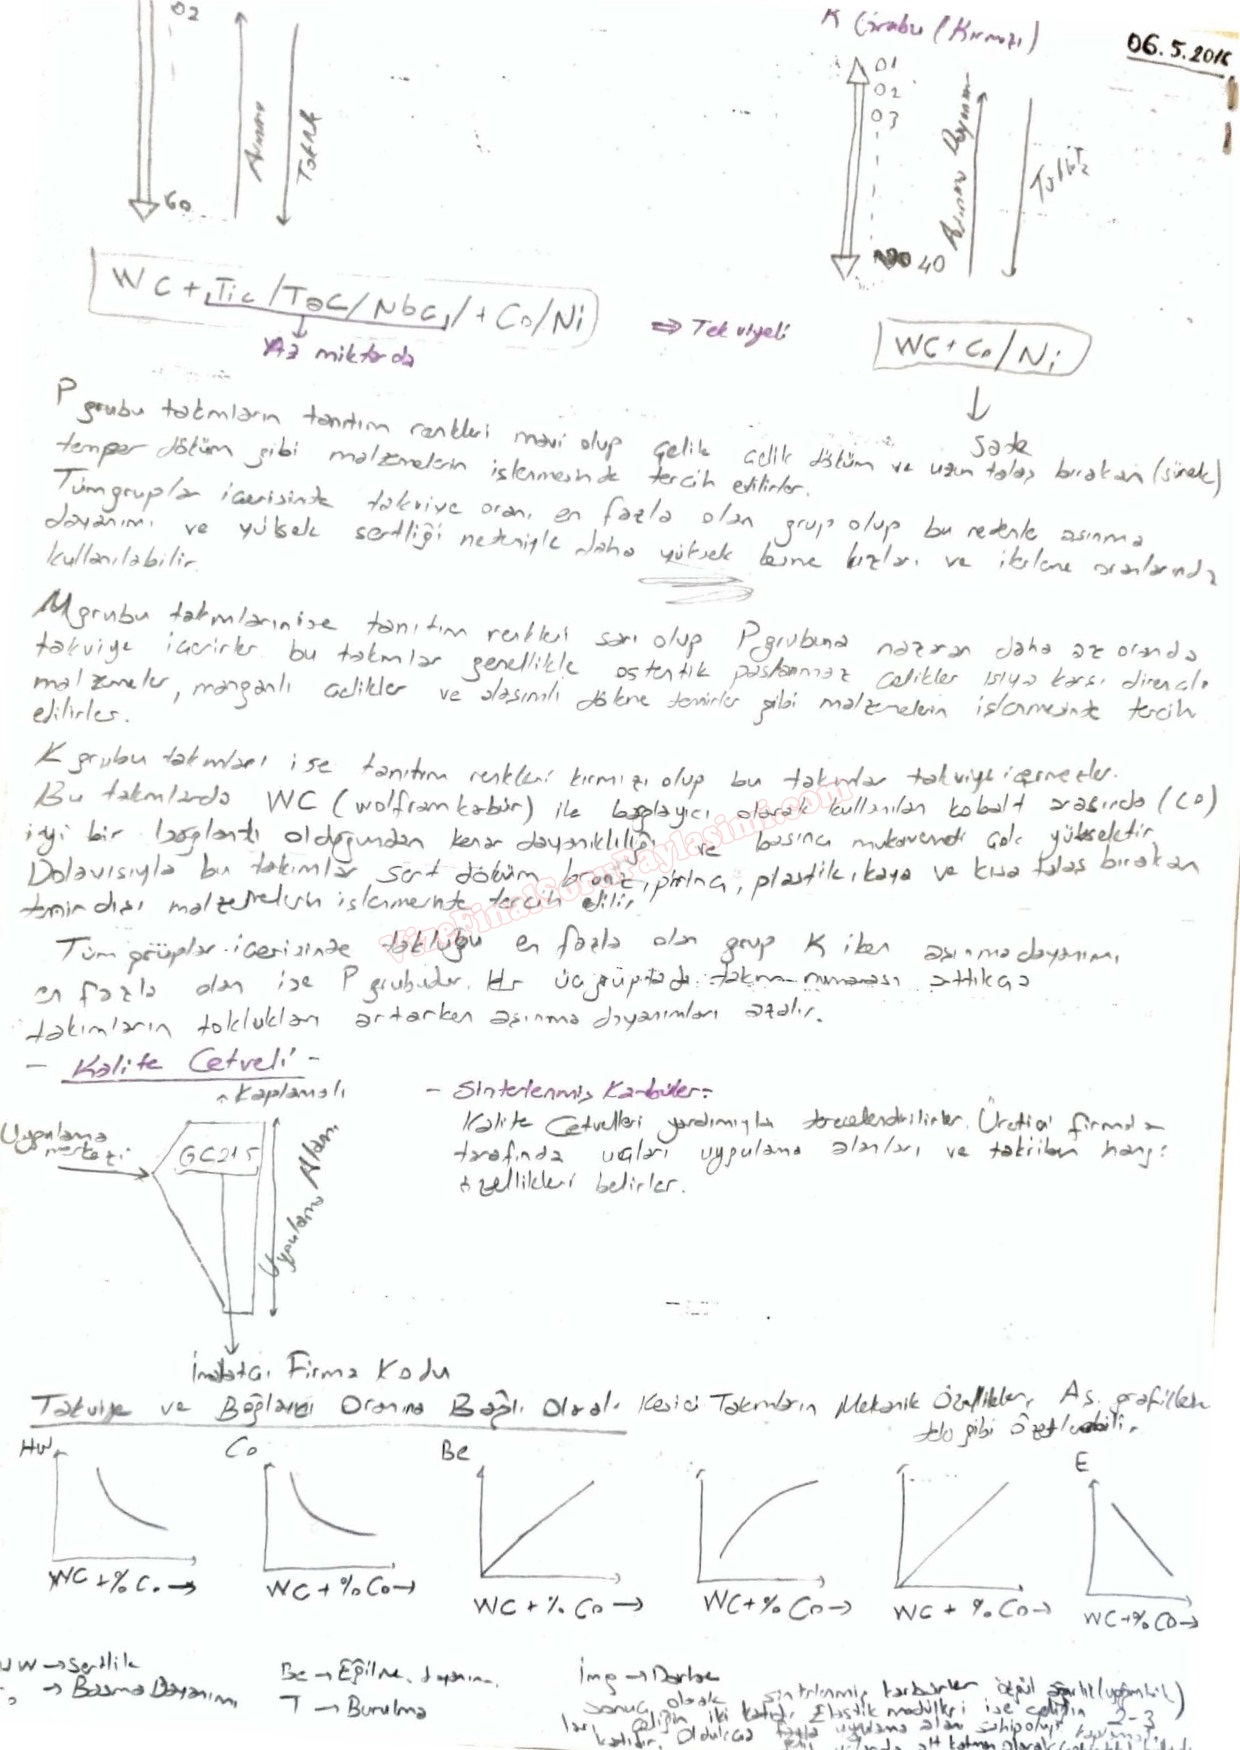 02
60
Aşınma
Tokluk
K Grubu (Kırmızı)
06.5.2016
01
02
03
40
Aşınma Dayanımı
Tokluk
WC + TiC / TaC / NbC / + Co/Ni
Az miktarda
⇒ Takviyeli
WC + Co/Ni
Sade
P grubu takımların tanıtım renkleri mavi olup çelik çelik döküm ve uzun talaş bırakan (sünek)
temper döküm gibi malzemelerin işlenmesinde tercih edilirler.
Tüm gruplar içerisinde takviye oranı en fazla olan grup olup bu nedenle aşınma
dayanımı ve yüksek sertliği nedeniyle daha yüksek kesme hızları ve ilerleme oranlarında
kullanılabilir.
M grubu takımların ise tanıtım renkleri sarı olup P grubuna nazaran daha az oranda
takviye içerirler. bu takımlar genellikle ostenitik paslanmaz çelikler ısıya karşı dirençli
malzemeler, manganlı çelikler ve alaşımlı dökme demirler gibi malzemelerin işlenmesinde tercih
edilirler.
K grubu takımları ise tanıtım renkleri kırmızı olup bu takımlar takviye içermezler.
Bu takımlarda WC (wolframkarbür) ile bağlayıcı olarak kullanılan kobalt arasında (Co)
iyi bir bağlantı olduğundan kenar dayanıklılığı ve basınca mukavemeti çok yüksektir
Dolayısıyla bu takımlar sert döküm bronz, pirinç, plastik, kaya ve kısa talaş bırakan
demir dışı malzemelerin işlenmesinde tercih edilir.
VizeFinalSoruPaylasimi.com
Tüm gruplar içerisinde tokluğu en fazla olan grup K iken aşınma dayanımı
en fazla olan ise P grubudur. Her üç grupta da takım numarası arttıkça
takımların toklukları artarken aşınma dayanımları azalır.
- Kalite Cetveli -
Kaplamalı
Uygulama
merkezi
GC215
Uygulama Alanı
- Sinterlenmiş Karbürler:
Kalite Cetvelleri yardımıyla derecelendirilirler. Üretici firmalar
tarafında uçları uygulama alanları ve takriben hangi
özellikleri belirler.
İmalatçı Firma Kodu
Takviye ve Bağlayıcı Oranına Bağlı Olarak Kesici Takımların Mekanik Özellikleri Aş. grafiklerde
gibi Özetlenebilir.
HW
WC + % Co →
Co
WC + % Co →
Be
WC + % Co →
WC + % Co →
WC + % Co →
E
WC + % Co →
HW → Sertlik
→ Basma Dayanımı
Be → Eğilme dayanımı
T → Burulma
İmg → Darbe
sonuç olarak sinterlenmiş karbürler özgül ağırlık
çeliğin iki katı, Elastik modülleri ise çeliğin 2-3
katıdır. Oldukça fazla uygulama alanı sahip olup